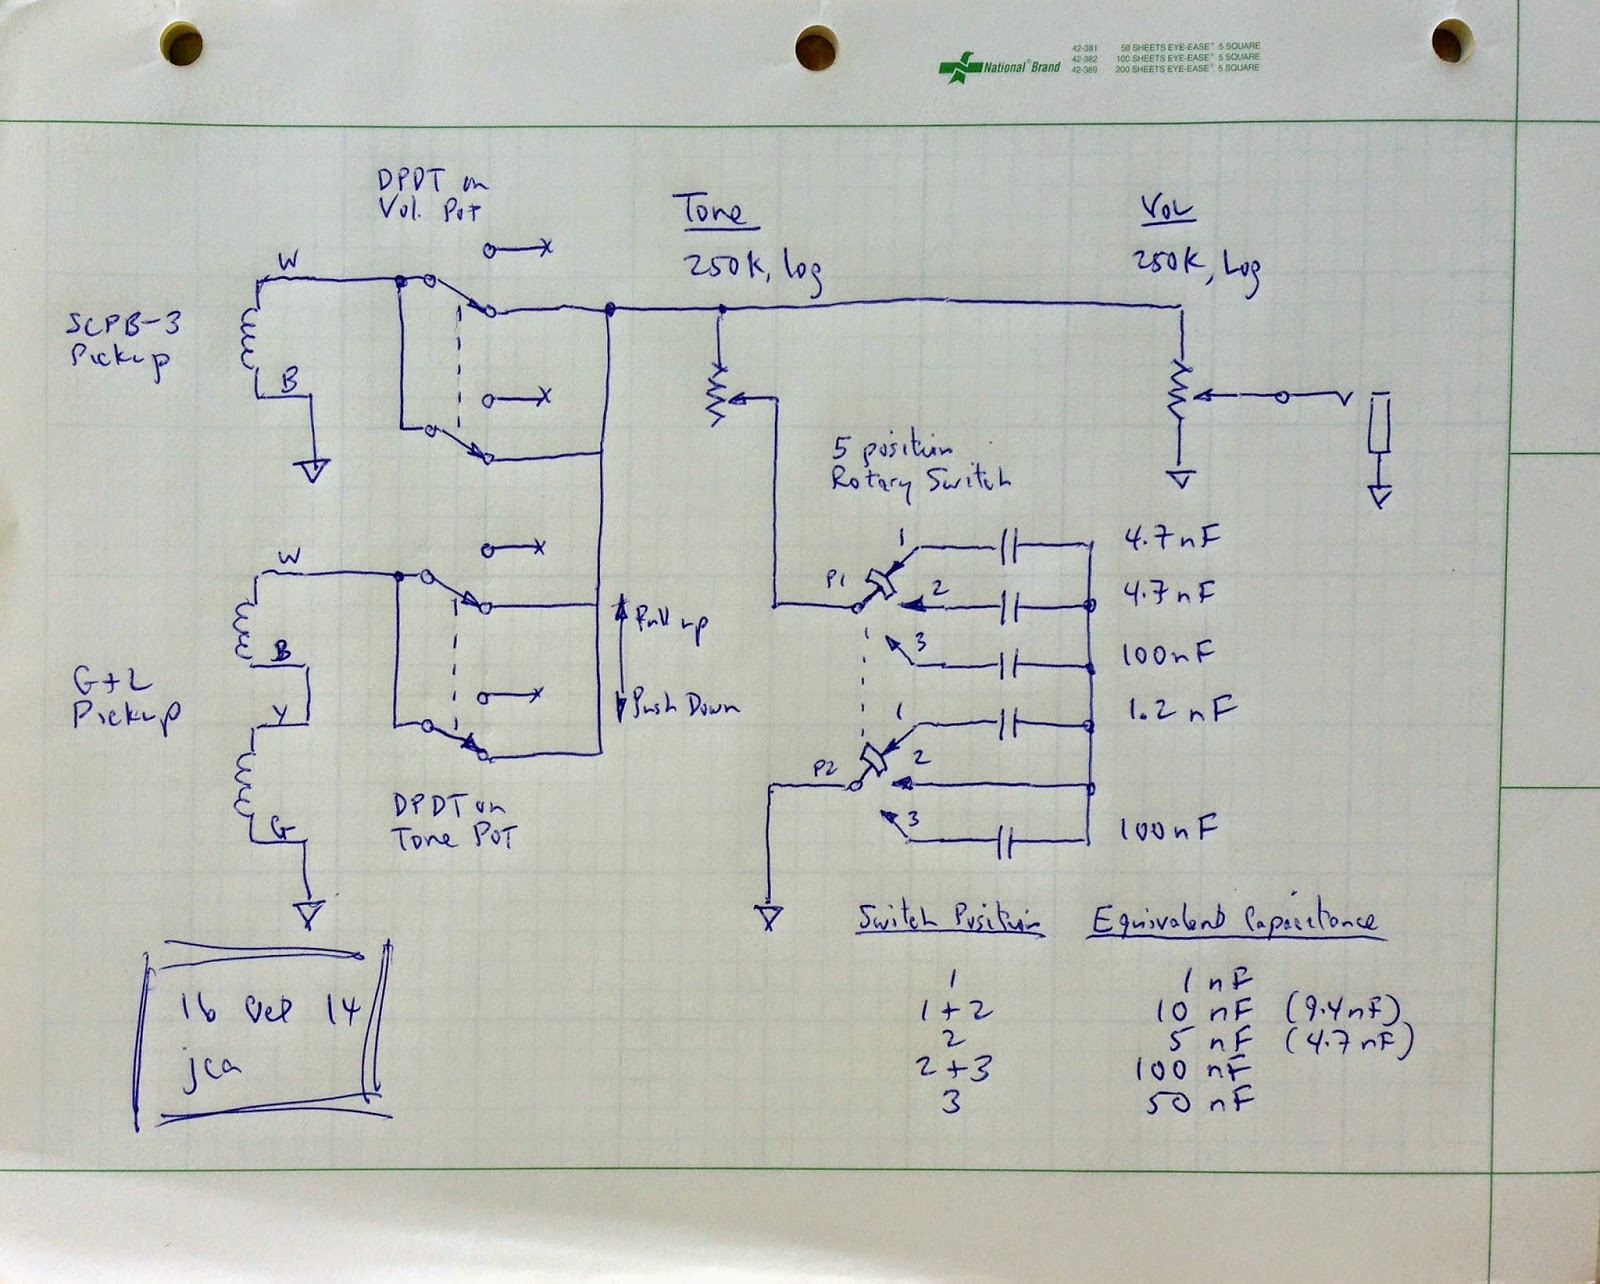 National® Brand
42-381 50 SHEETS EYE-EASE® 5 SQUARE
42-382 100 SHEETS EYE-EASE® 5 SQUARE
42-389 200 SHEETS EYE-EASE® 5 SQUARE
DPDT on
Vol. Pot
Tone
250K, Log
Vol
250K, Log
W
SCPB-3
Pickup
B
5 position
Rotary Switch
1
4.7 nF
P1
2
4.7 nF
3
100 nF
W
B
G+L
Pickup
Y
G
Pull up
Push Down
DPDT on
Tone Pot
1
1.2 nF
P2
2
3
100 nF
Switch Position Equivalent Capacitance
1 1 nF
1+2 10 nF (9.4 nF)
2 5 nF (4.7 nF)
2+3 100 nF
3 50 nF
16 14
jca